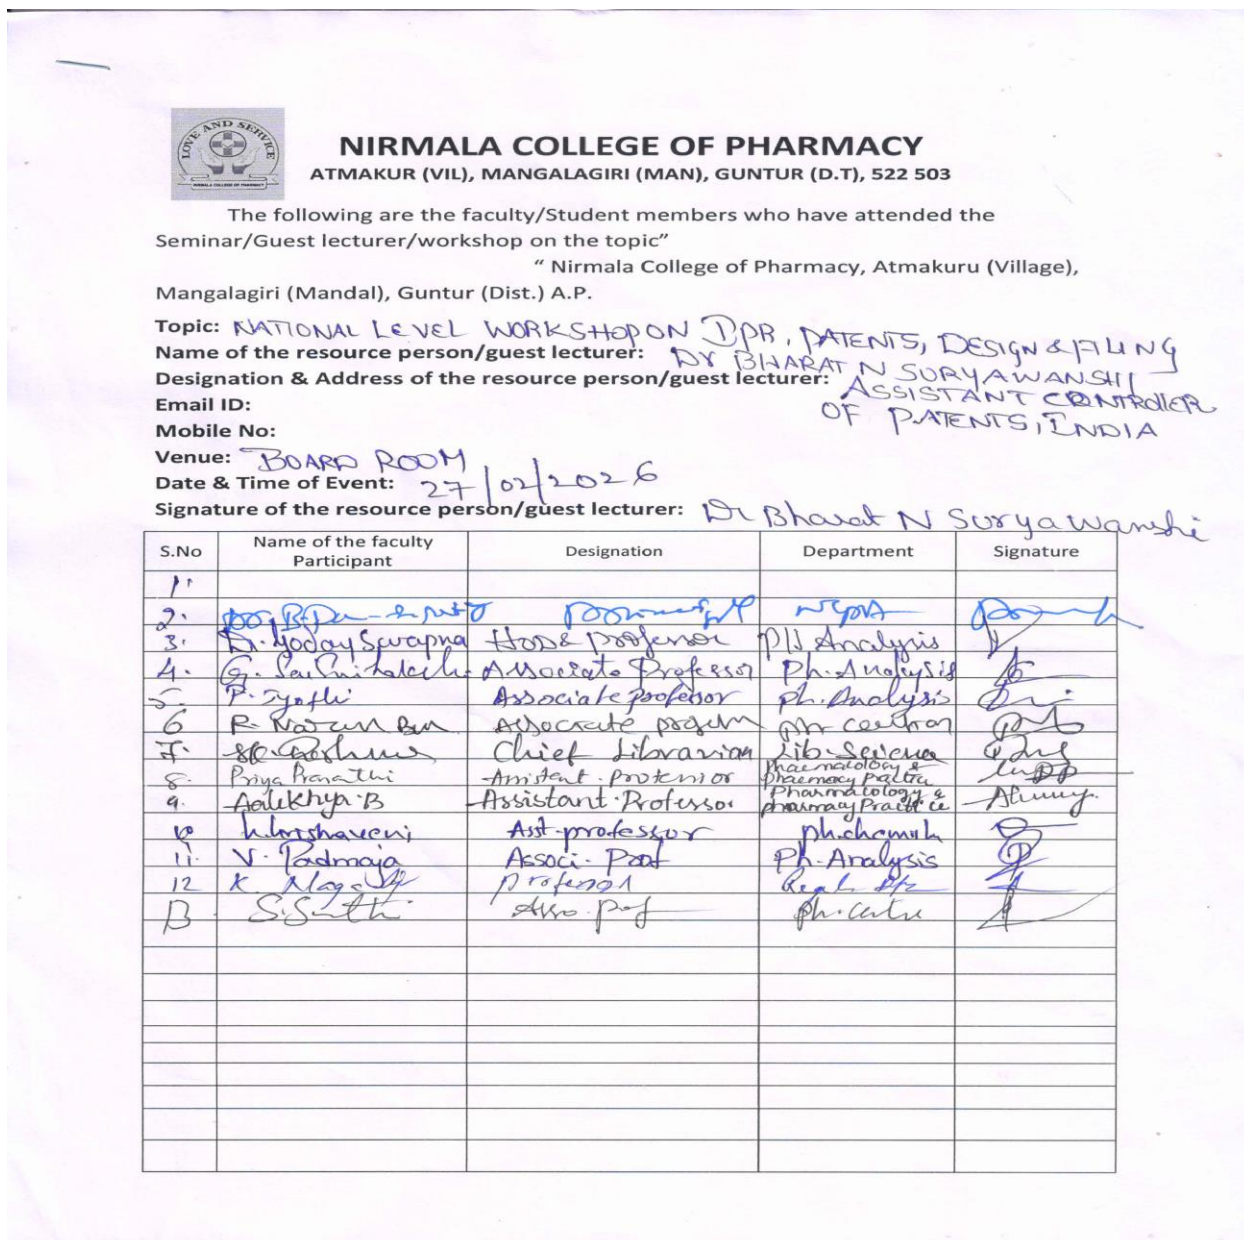 LOVE AND SERVICE
NIRMALA COLLEGE OF PHARMACY
NIRMALA COLLEGE OF PHARMACY
ATMAKUR (VIL), MANGALAGIRI (MAN), GUNTUR (D.T), 522 503
The following are the faculty/Student members who have attended the
Seminar/Guest lecturer/workshop on the topic”
“ Nirmala College of Pharmacy, Atmakuru (Village),
Mangalagiri (Mandal), Guntur (Dist.) A.P.
Topic: NATIONAL LEVEL WORKSHOP ON IPR, PATENTS, DESIGN & FILING
Name of the resource person/guest lecturer: Dr BHARAT N SURYAWANSHI
Designation & Address of the resource person/guest lecturer: ASSISTANT CONTROllER
OF PATENTS, INDIA
Email ID:
Mobile No:
Venue: BOARD ROOM
Date & Time of Event: 27/02/2026
Signature of the resource person/guest lecturer: Dr Bharat N Suryawanshi
S.No Name of the faculty Participant Designation Department Signature
1.
2.
3. HOD & professor PH Analysis
4. Associate Professor Ph. Analysis
5. P. Jyothi Associate professor ph. Analysis
6 Associate
7. Chief Librarian Lib. Science
8. Priya Pranathi Assistant. professor Pharmacology & pharmacy
9. Aalekhya. B Assistant. Professor Pharmacology & pharmacy Practice
10 Asst. professor
11. V. Padmaja Associ. Prof Ph. Analysis
12 K. professor
13 Asso. prof